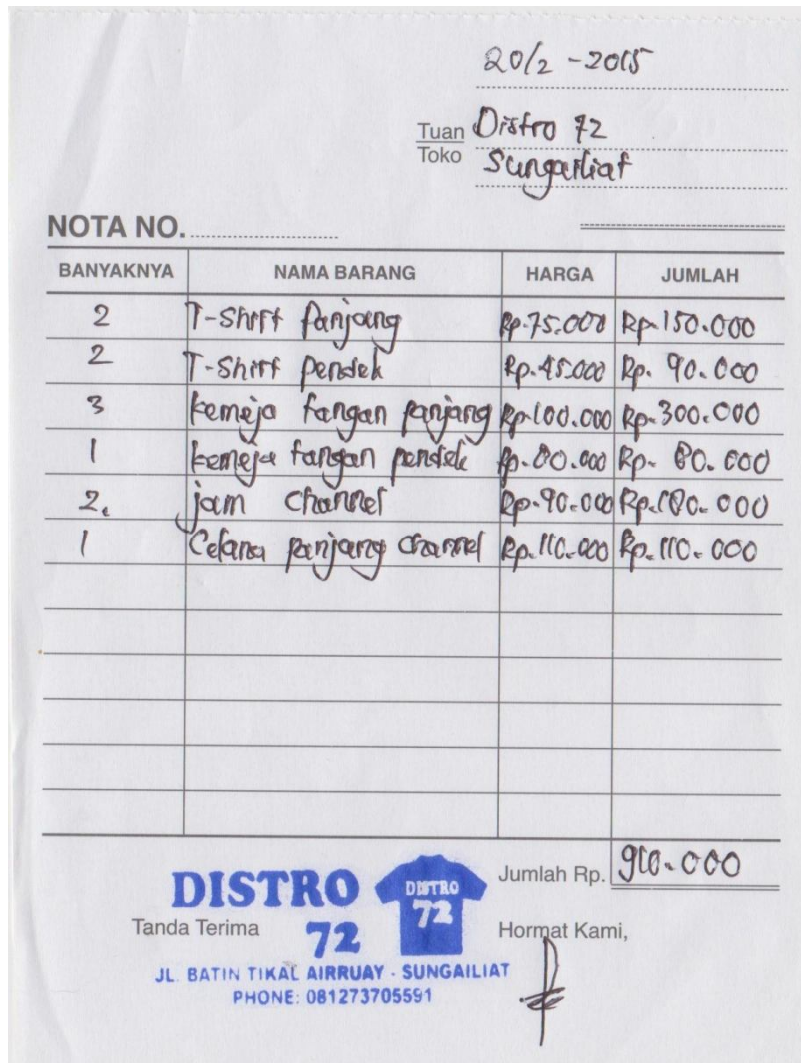 20/2 - 2015
Tuan Distro 72
Toko Sungailiat
NOTA NO.
BANYAKNYA NAMA BARANG HARGA JUMLAH
2 T-Shirt Panjang Rp.75.000 Rp.150.000
2 T-Shirt pendek Rp.45.000 Rp. 90.000
3 kemeja tangan panjang Rp.100.000 Rp.300.000
1 kemeja tangan pendek Rp.80.000 Rp. 80.000
2. jam channel Rp.90.000 Rp.180.000
1 Celana panjang channel Rp.110.000 Rp.110.000
Jumlah Rp. 910.000
DISTRO 72
DISTRO 72
Tanda Terima
Hormat Kami,
JL. BATIN TIKAL AIRRUAY - SUNGAILIAT
PHONE: 081273705591